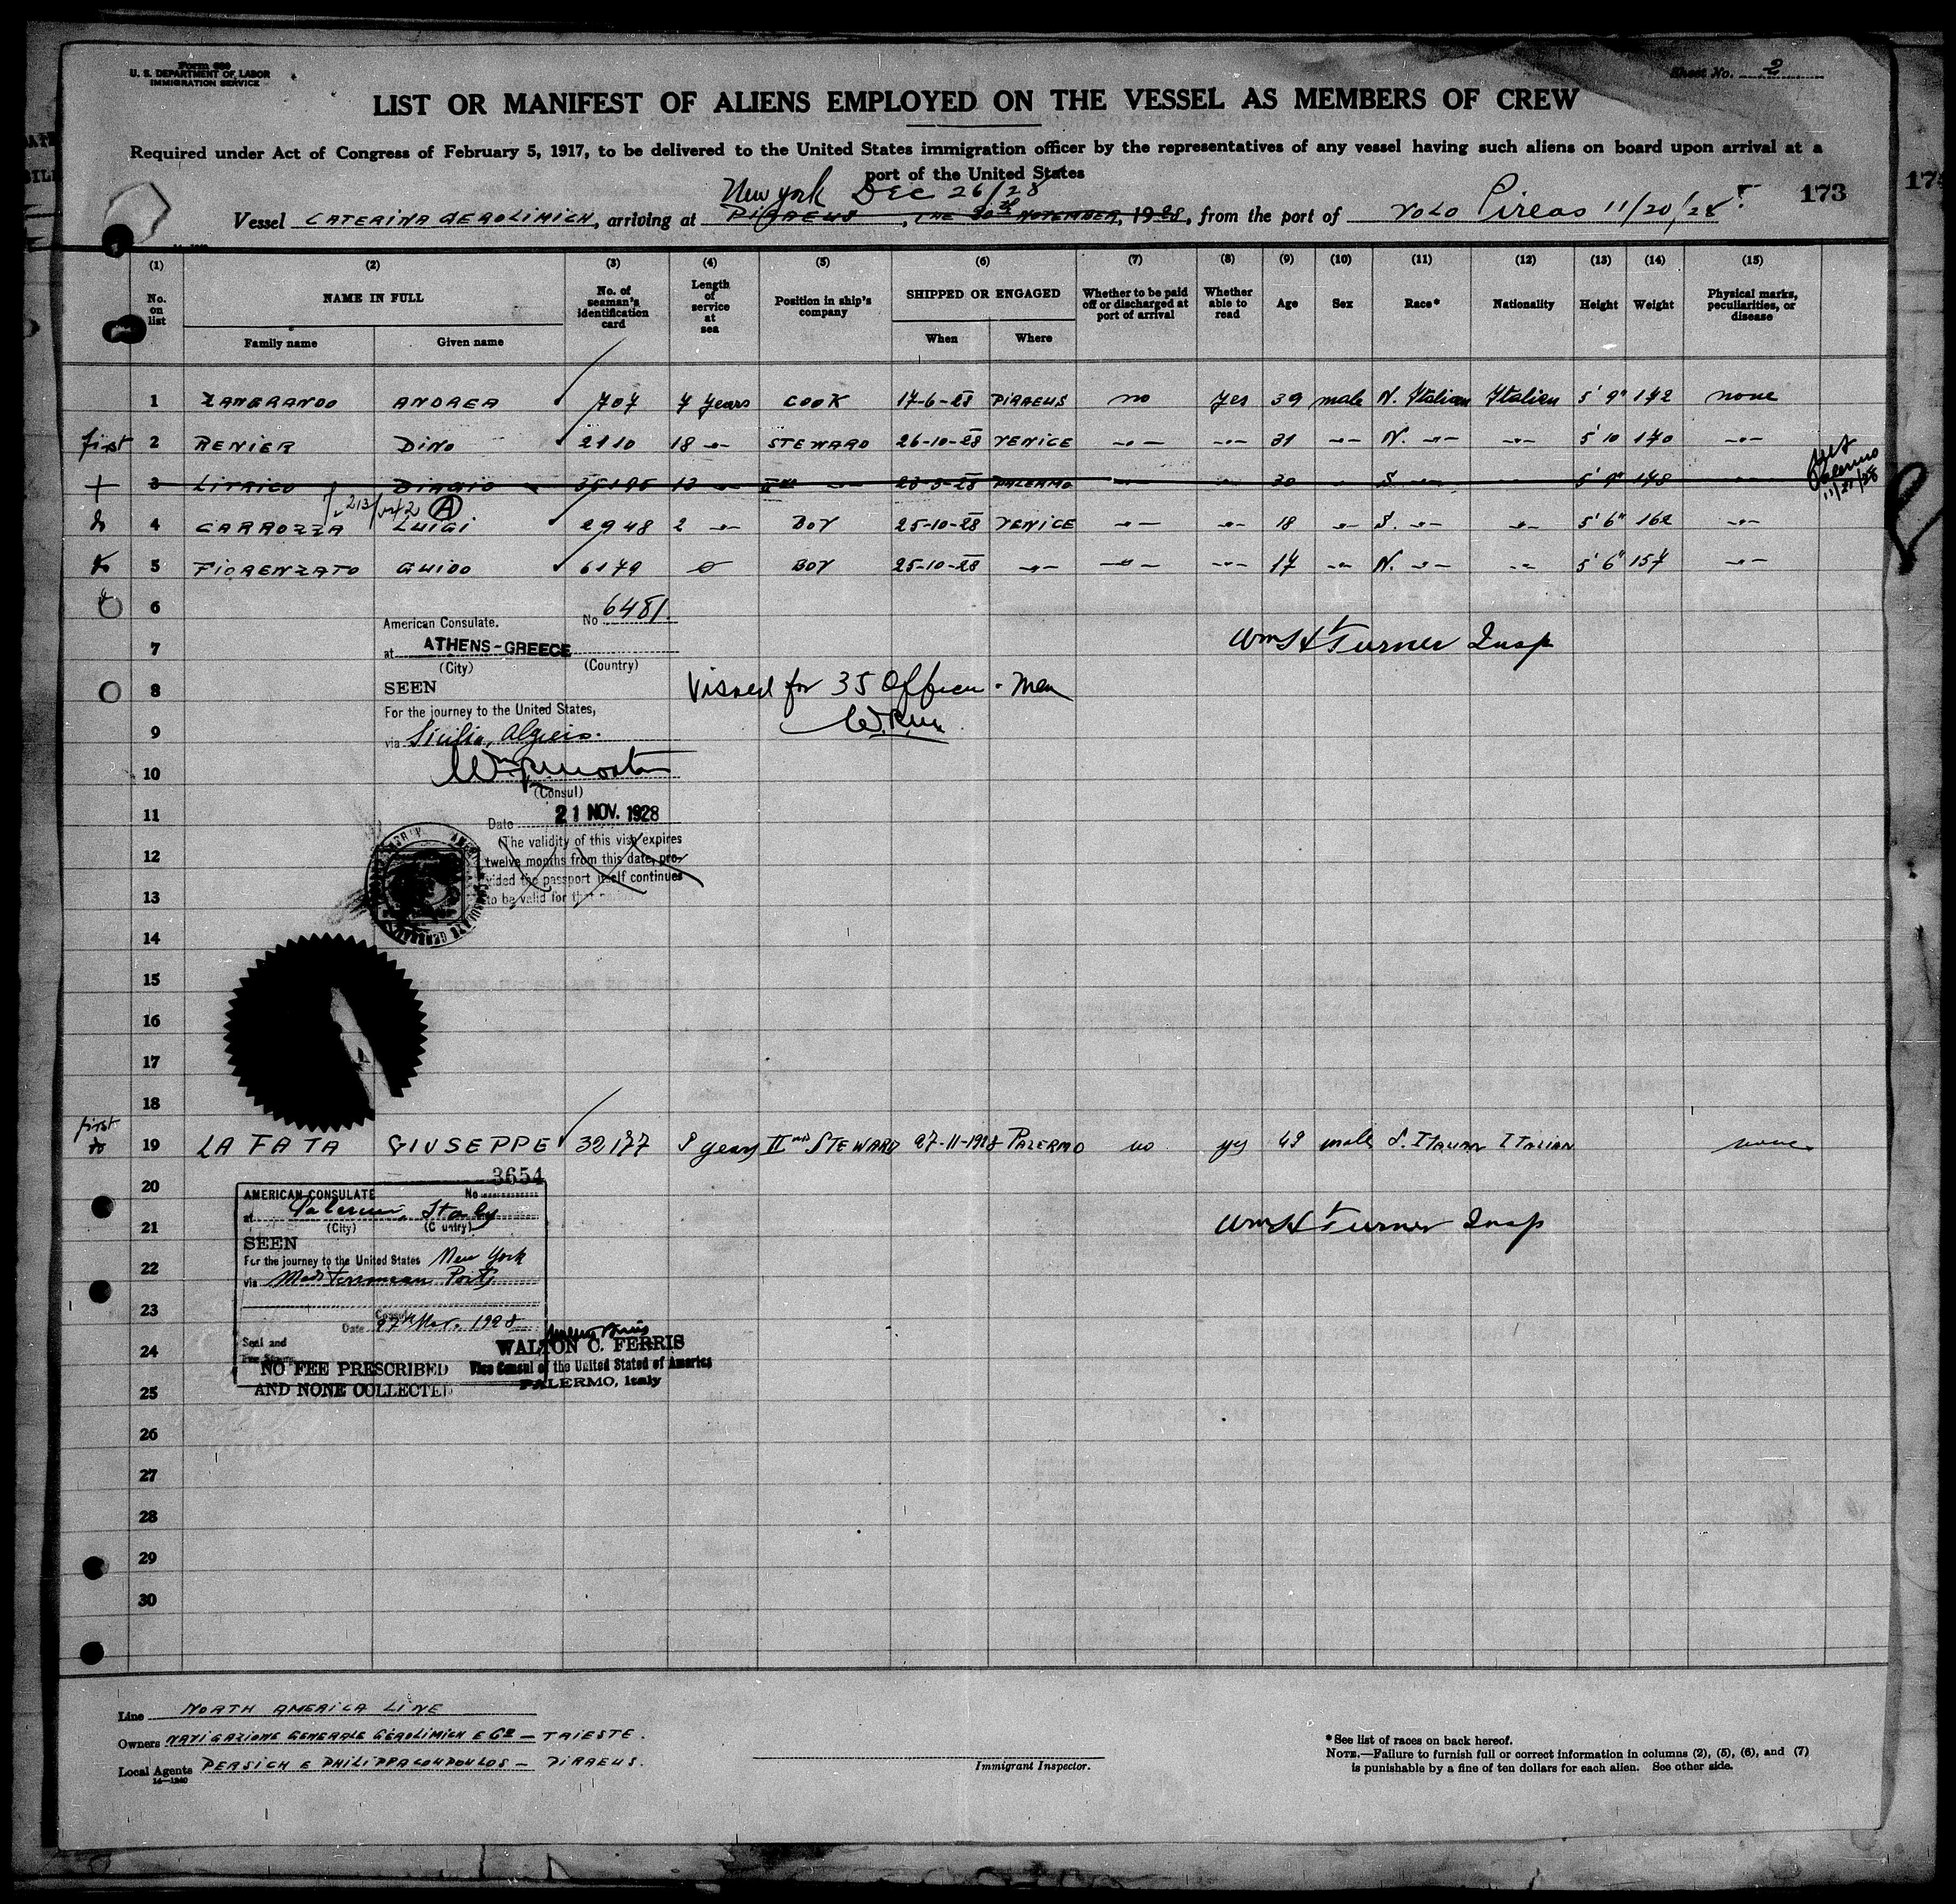 Form 680
U. S. DEPARTMENT OF LABOR
IMMIGRATION SERVICE
Sheet No. 2
LIST OR MANIFEST OF ALIENS EMPLOYED ON THE VESSEL AS MEMBERS OF CREW
Required under Act of Congress of February 5, 1917, to be delivered to the United States immigration officer by the representatives of any vessel having such aliens on board upon arrival at a
port of the United States
New York Dec 26/28
173
174
Vessel CATERINA GEROLIMICH, arriving at PIRAEUS, THE 20th NOVEMBER, 1928, from the port of VOLO Pireas 11/20/28
(1) (2) (3) (4) (5) (6) (7) (8) (9) (10) (11) (12) (13) (14) (15)
No. on list NAME IN FULL No. of seaman's identification card Length of service at sea Position in ship's company SHIPPED OR ENGAGED Whether to be paid off or discharged at port of arrival Whether able to read Age Sex Race* Nationality Height Weight Physical marks, peculiarities, or disease
Family name Given name When Where
1 ZANGRANDO ANDREA 707 7 years COOK 17-6-28 PIRAEUS no yes 39 male N. Italian Italien 5' 9" 172 none
first 2 RENIER DINO 2110 18 -"- STEWARD 26-10-28 VENICE -"- -"- 31 -"- N. -"- -"- 5' 10 170 -"-
+ 3 LITRICO BIAGIO 35195 13 -"- IInd -"- 23-8-28 PALERMO -"- -"- 30 -"- S. -"- -"- 5' 9" 148 -"-
Palermo
11/27/28
A
4 CARROZZA LUIGI 2948 2 -"- BOY 25-10-28 VENICE -"- -"- 18 -"- S. -"- -"- 5' 6" 162 -"-
5 FIORENZATO GUIDO 6179 BOY 25-10-28 -"- -"- -"- 17 -"- N. -"- -"- 5' 6" 157 -"-
6
American Consulate. No 6481.
7 at ATHENS-GREECE
(City) (Country)
Wm H Turner Insp
8 SEEN
Visaed for 35 Officers - Men
W.R.M.
For the journey to the United States,
9 via Sicilia, Algiers.
10
(Consul)
11 Date 21 NOV. 1928
(The validity of this visa expires
12 twelve months from this date, pro-
vided the passport itself continues
13 to be valid for that
14
15
16
17
18
first
19 LA FATA GIUSEPPE 32177 9 years IInd STEWARD 27-11-1928 PALERMO no yes 49 male S. ITALIAN ITALIAN none
20
3654
AMERICAN CONSULATE No
at Palermo, Italy
21 (City) (Country)
Wm H Turner Insp
SEEN
For the journey to the United States New York
22 via Mediterranean Ports
23
Consul
Date 27th Nov. 1928
Seal and
Fee Stamp
24 WALTON C. FERRIS
NO FEE PRESCRIBED Vice Consul of the United Stated of America
25 AND NONE COLLECTED PALERMO, Italy
26
27
28
29
30
Line NORTH AMERICA LINE
Owners NAVIGAZIONE GENERALE GEROLIMICH E Co — TRIESTE.
Local Agents PERSICH E PHILIPPACOUPOULOS — PIRAEUS.
14—1240
Immigrant Inspector.
*See list of races on back hereof.
NOTE.—Failure to furnish full or correct information in columns (2), (5), (6), and (7)
is punishable by a fine of ten dollars for each alien. See other side.